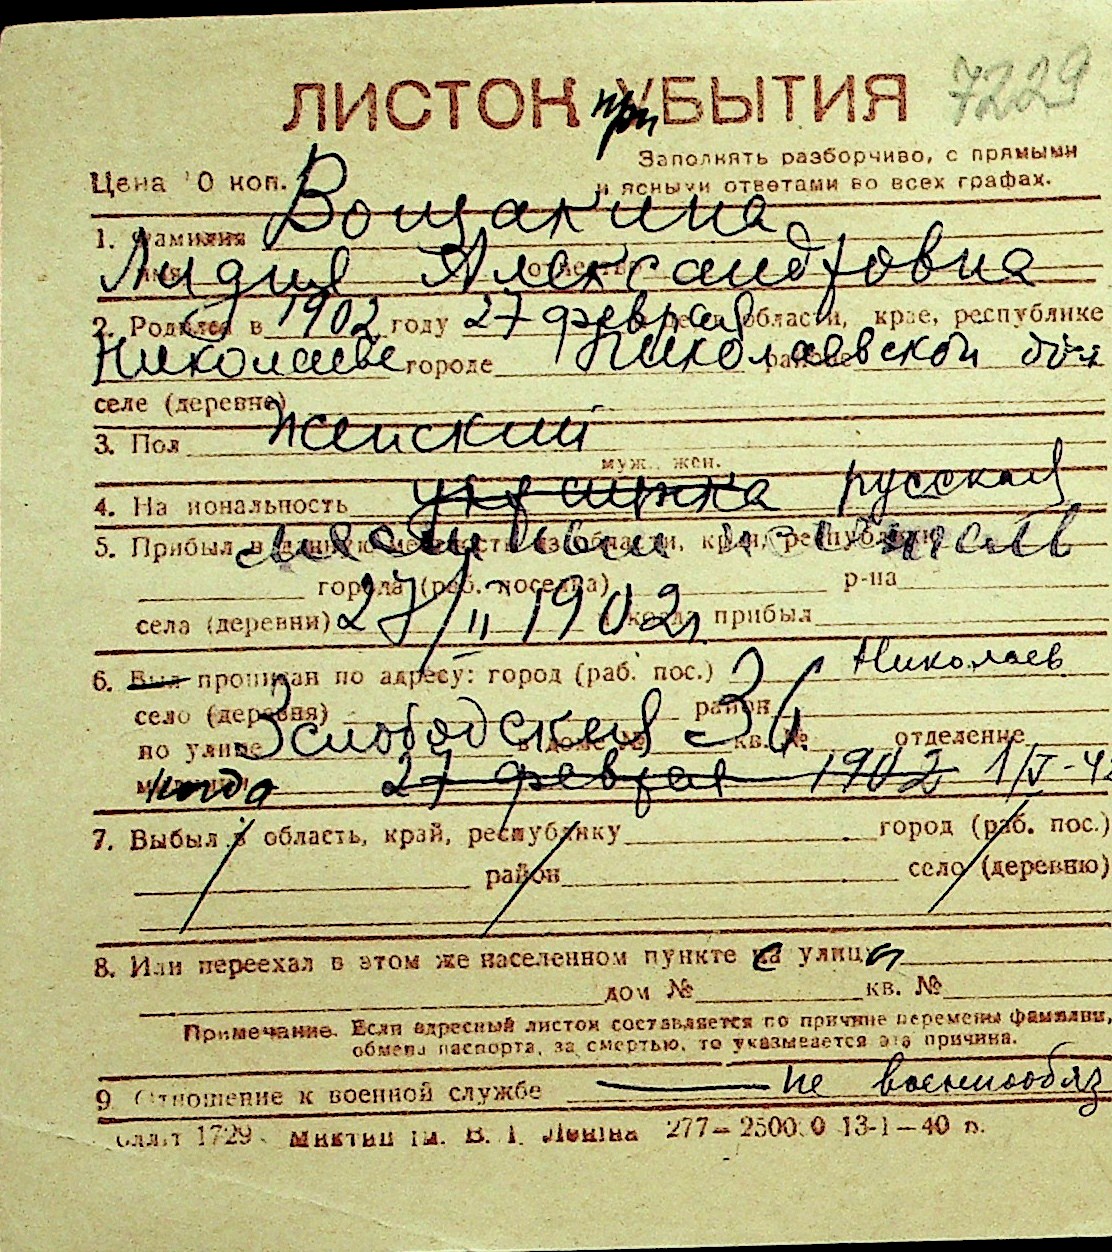 7229
ЛИСТОК при УБЫТИЯ
Заполнять разборчиво, с прямыми
и ясными ответами во всех графах.
Цена 0 коп.
1. Фамилия Вощакина
имя Лидия отчество Александровна
2. Родился в 1902 году 27 февраля области, крае, республике
Николаеве городе Николаевской обл районе
селе (деревне)
3. Пол Женский
муж., жен.
4. Национальность украинка русская
5. Прибыл в данную местность из области, края, республики
города (раб. поселка) р-на
села (деревни) 27/II 1902 и когда прибыл
6. Был прописан по адресу: город (раб. пос.) Николаев
село (деревня) район
по улице Слободская в доме № 36 кв. № отделение
милиции когда 27 февраля 1902 1/V-42
7. Выбыл в область, край, республику город (раб. пос.)
район село (деревню)
8. Или переехал в этом же населенном пункте с улицы
дом № кв. №
Примечание. Если адресный листок составляется по причине перемены фамилии,
обмена паспорта, за смертью, то указывается эта причина.
9. Отношение к военной службе не военнообяз
1729 277—2500 0 13-1—40 р.